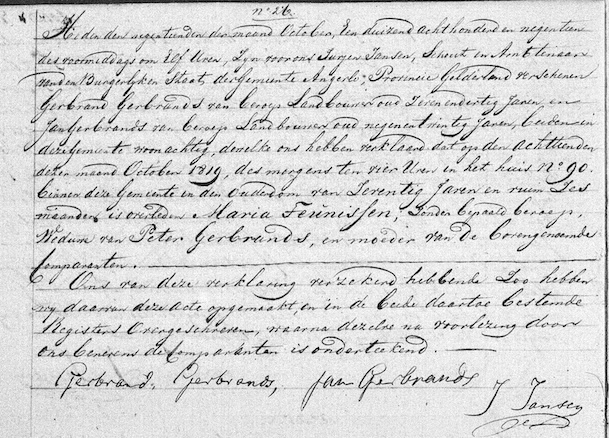 no. 26.
Heden den negentienden der maand October, Een duizend achthonderd en negentien
des voormiddags om Elf Uren, Zyn voor ons Jurjen Jansen, Scheut en Ambtenaar
van den Burgerlyken Staat der Gemeente Angerlo, Provincie Gelderland verschenen
Gerbrand Gerbrands van beroep Landbouwer oud Zeven en dertig Jaren, en
Jan Gerbrands van beroep Landbouwer oud negen en twintig Jaren, beiden in
deze Gemeente woonachtig, dewelke ons hebben verklaard dat op den achttienden
dezer maand October 1819, des morgens ten vier Uren in het huis No. 90.
binnen deze Gemeente in den ouderdom van Zeventig Jaren en ruim Zes
maanden is overleden Maria Teunissen, Zonder bepaald beroep,
Weduwe van Peter Gerbrands, en moeder van de bovengenoemde
Comparanten.
Ons van deze verklaring verzekerd hebbende Zoo hebben
wy daarvan deze acte opgemaakt, en in de beide daartoe bestemde
Registers overgeschreven, waarna dezelve na voorlezing door
ons benevens de Comparanten is onderteekend.
Gerbrand, Gerbrands, Jan Gerbrands
J Jansen